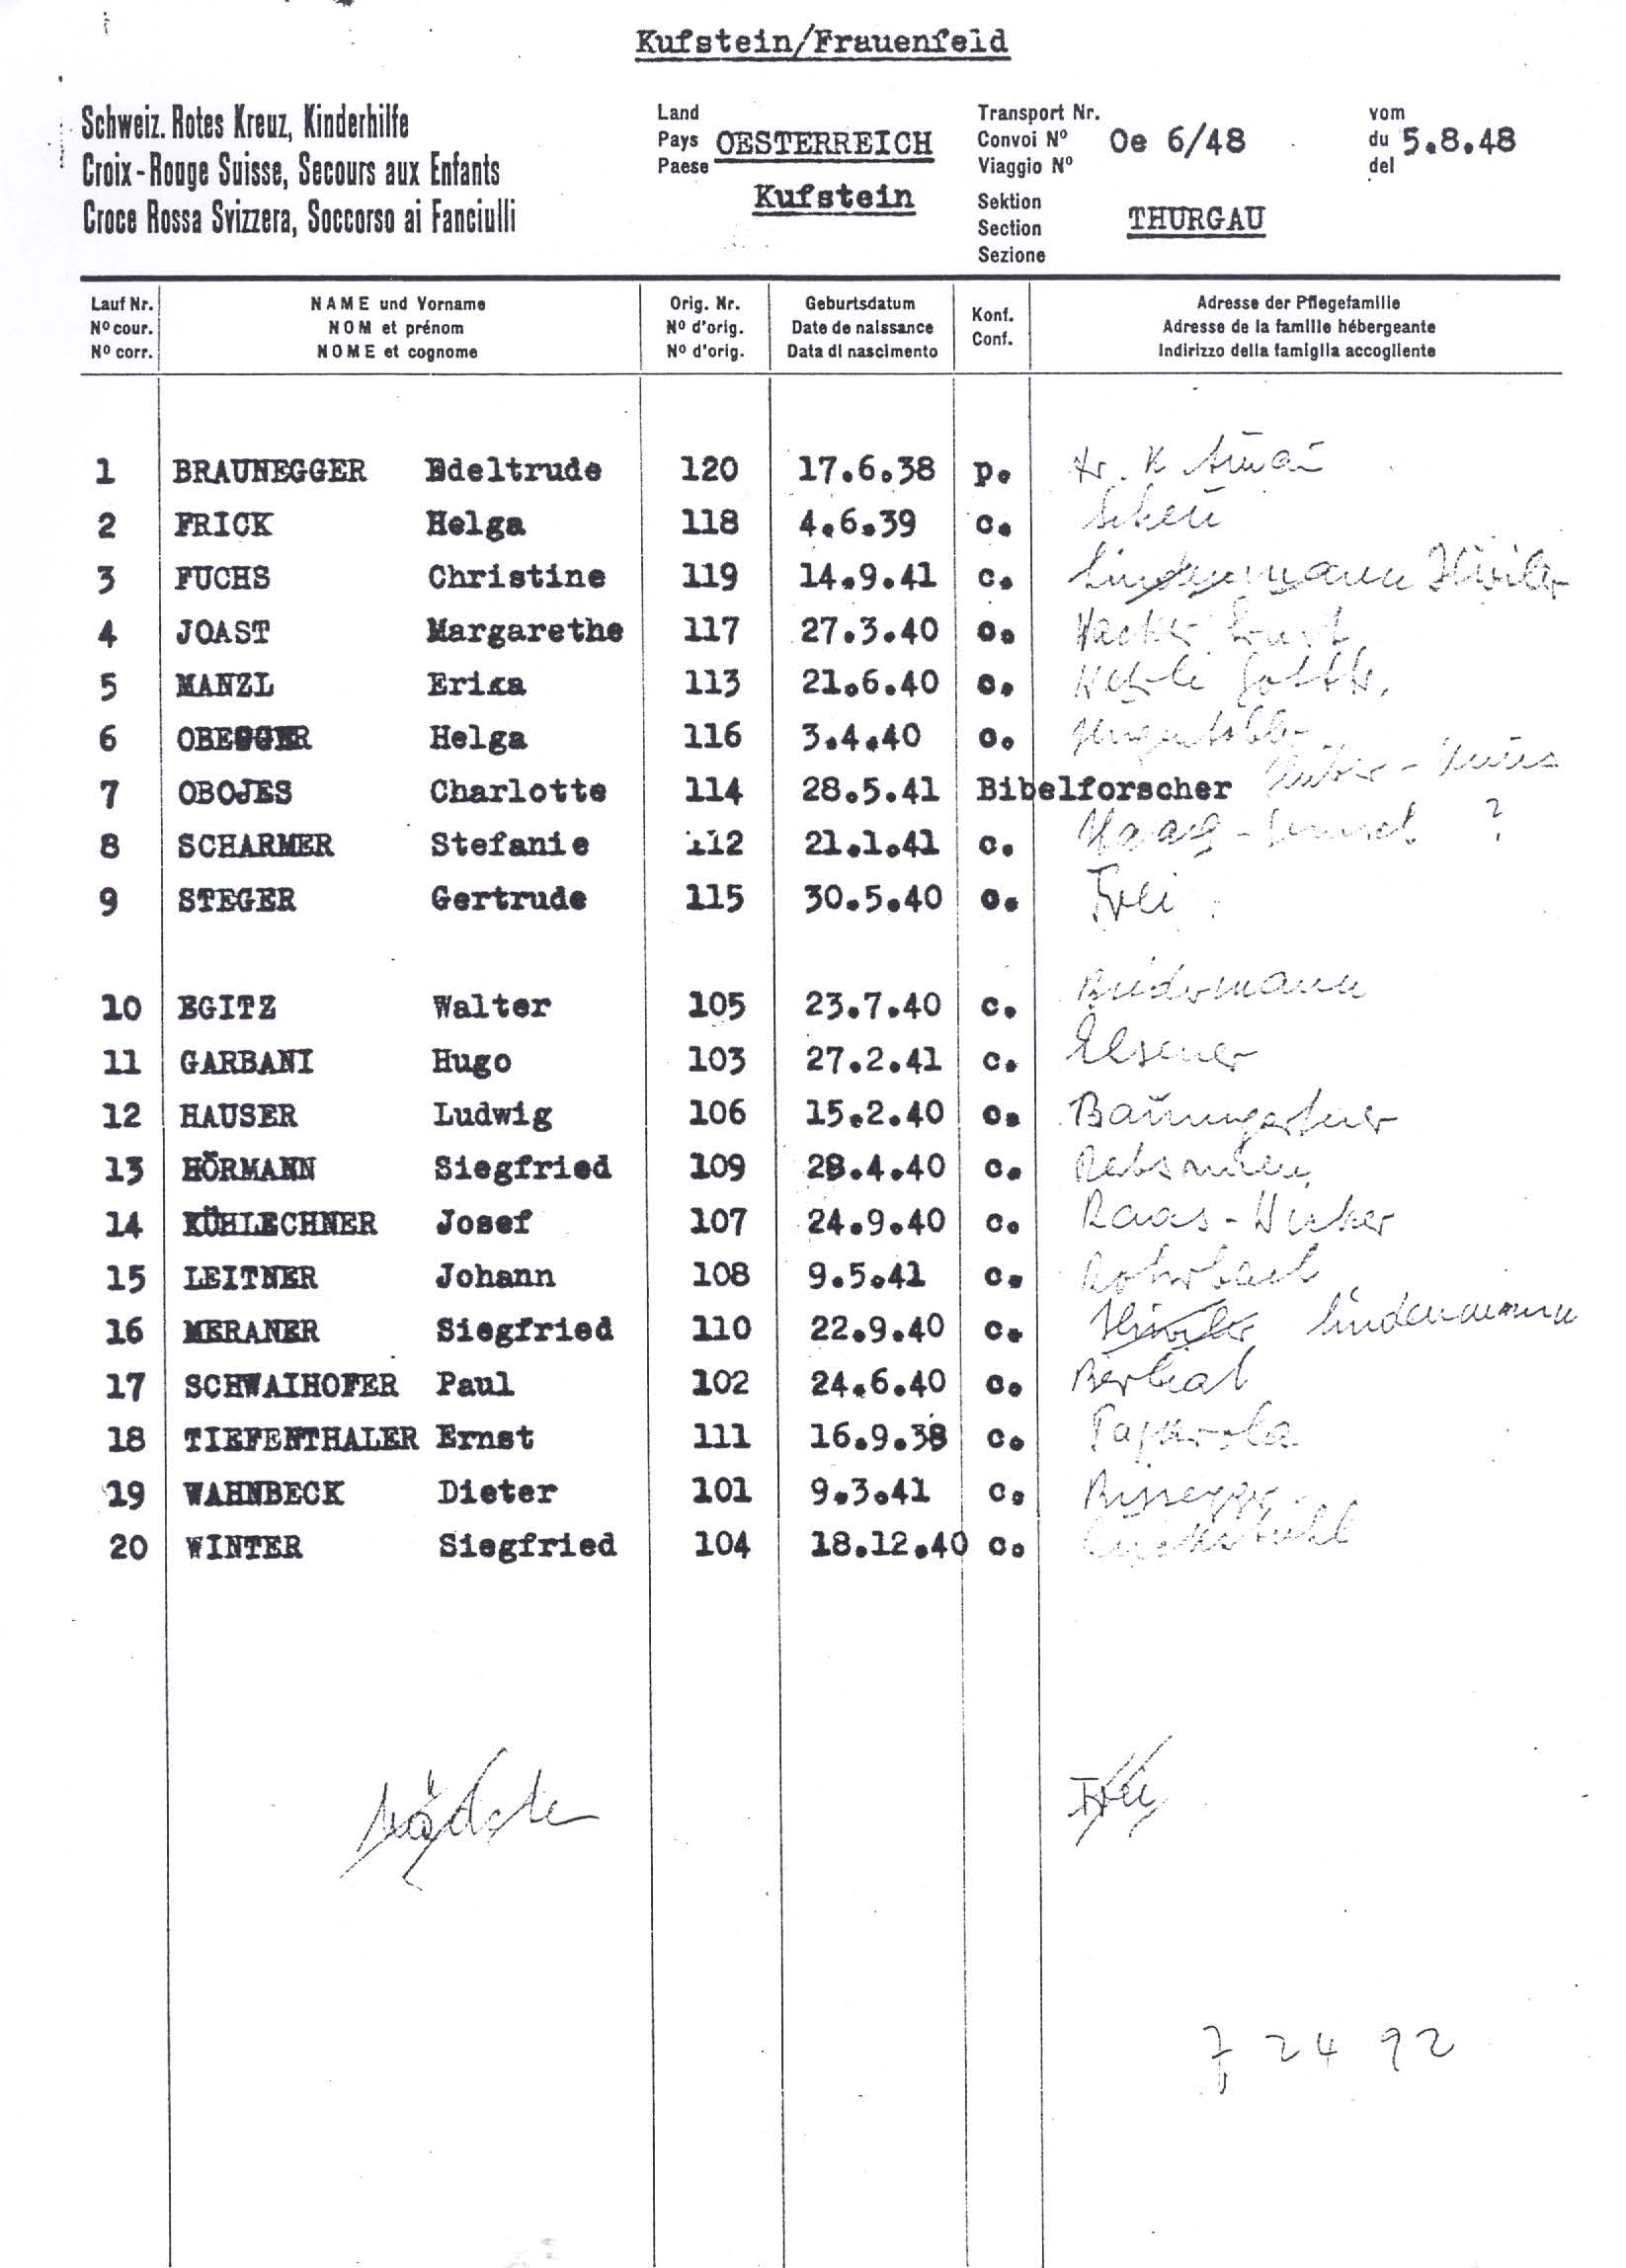 Kufstein/Frauenfeld
Schweiz. Rotes Kreuz, Kinderhilfe
Croix-Rouge Suisse, Secours aux Enfants
Croce Rossa Svizzera, Soccorso ai Fanciulli
Land
Pays OESTERREICH
Paese
Kufstein
Transport Nr.
Convoi Nº Oe 6/48
Viaggio Nº
vom
du 5.8.48
del
Sektion
Section THURGAU
Sezione
Lauf Nr. NAME und Vorname Orig. Nr. Geburtsdatum Konf. Adresse der Pflegefamilie
Nº cour. NOM et prénom Nº d'orig. Date de naissance Conf. Adresse de la famille hébergeante
Nº corr. NOME et cognome Nº d'orig. Data di nascimento Indirizzo della famiglia accogliente
1 BRAUNEGGER Edeltrude 120 17.6.38 p.
2 FRICK Helga 118 4.6.39 c.
3 FUCHS Christine 119 14.9.41 c. Lindenmann
4 JOAST Margarethe 117 27.3.40 c.
5 MANZL Erika 113 21.6.40 c.
6 OBEGGER Helga 116 3.4.40 c.
7 OBOJES Charlotte 114 28.5.41 Bibelforscher
8 SCHARMER Stefanie 112 21.1.41 c. Haag- ?
9 STEGER Gertrude 115 30.5.40 c. Frei
10 EGITZ Walter 105 23.7.40 c.
11 GARBANI Hugo 103 27.2.41 c. Elsener
12 HAUSER Ludwig 106 15.2.40 c. Baumgartner
13 HÖRMANN Siegfried 109 28.4.40 c. Rebsamen
14 KÜHLECHNER Josef 107 24.9.40 c. Raas-
15 LEITNER Johann 108 9.5.41 c. Rohrbach
16 MERANER Siegfried 110 22.9.40 c. Lindenmann
17 SCHWAIHOFER Paul 102 24.6.40 c.
18 TIEFENTHALER Ernst 111 16.9.38 c.
19 WAHNBECK Dieter 101 9.3.41 c.
20 WINTER Siegfried 104 18.12.40 c.
Frei
7 24 92